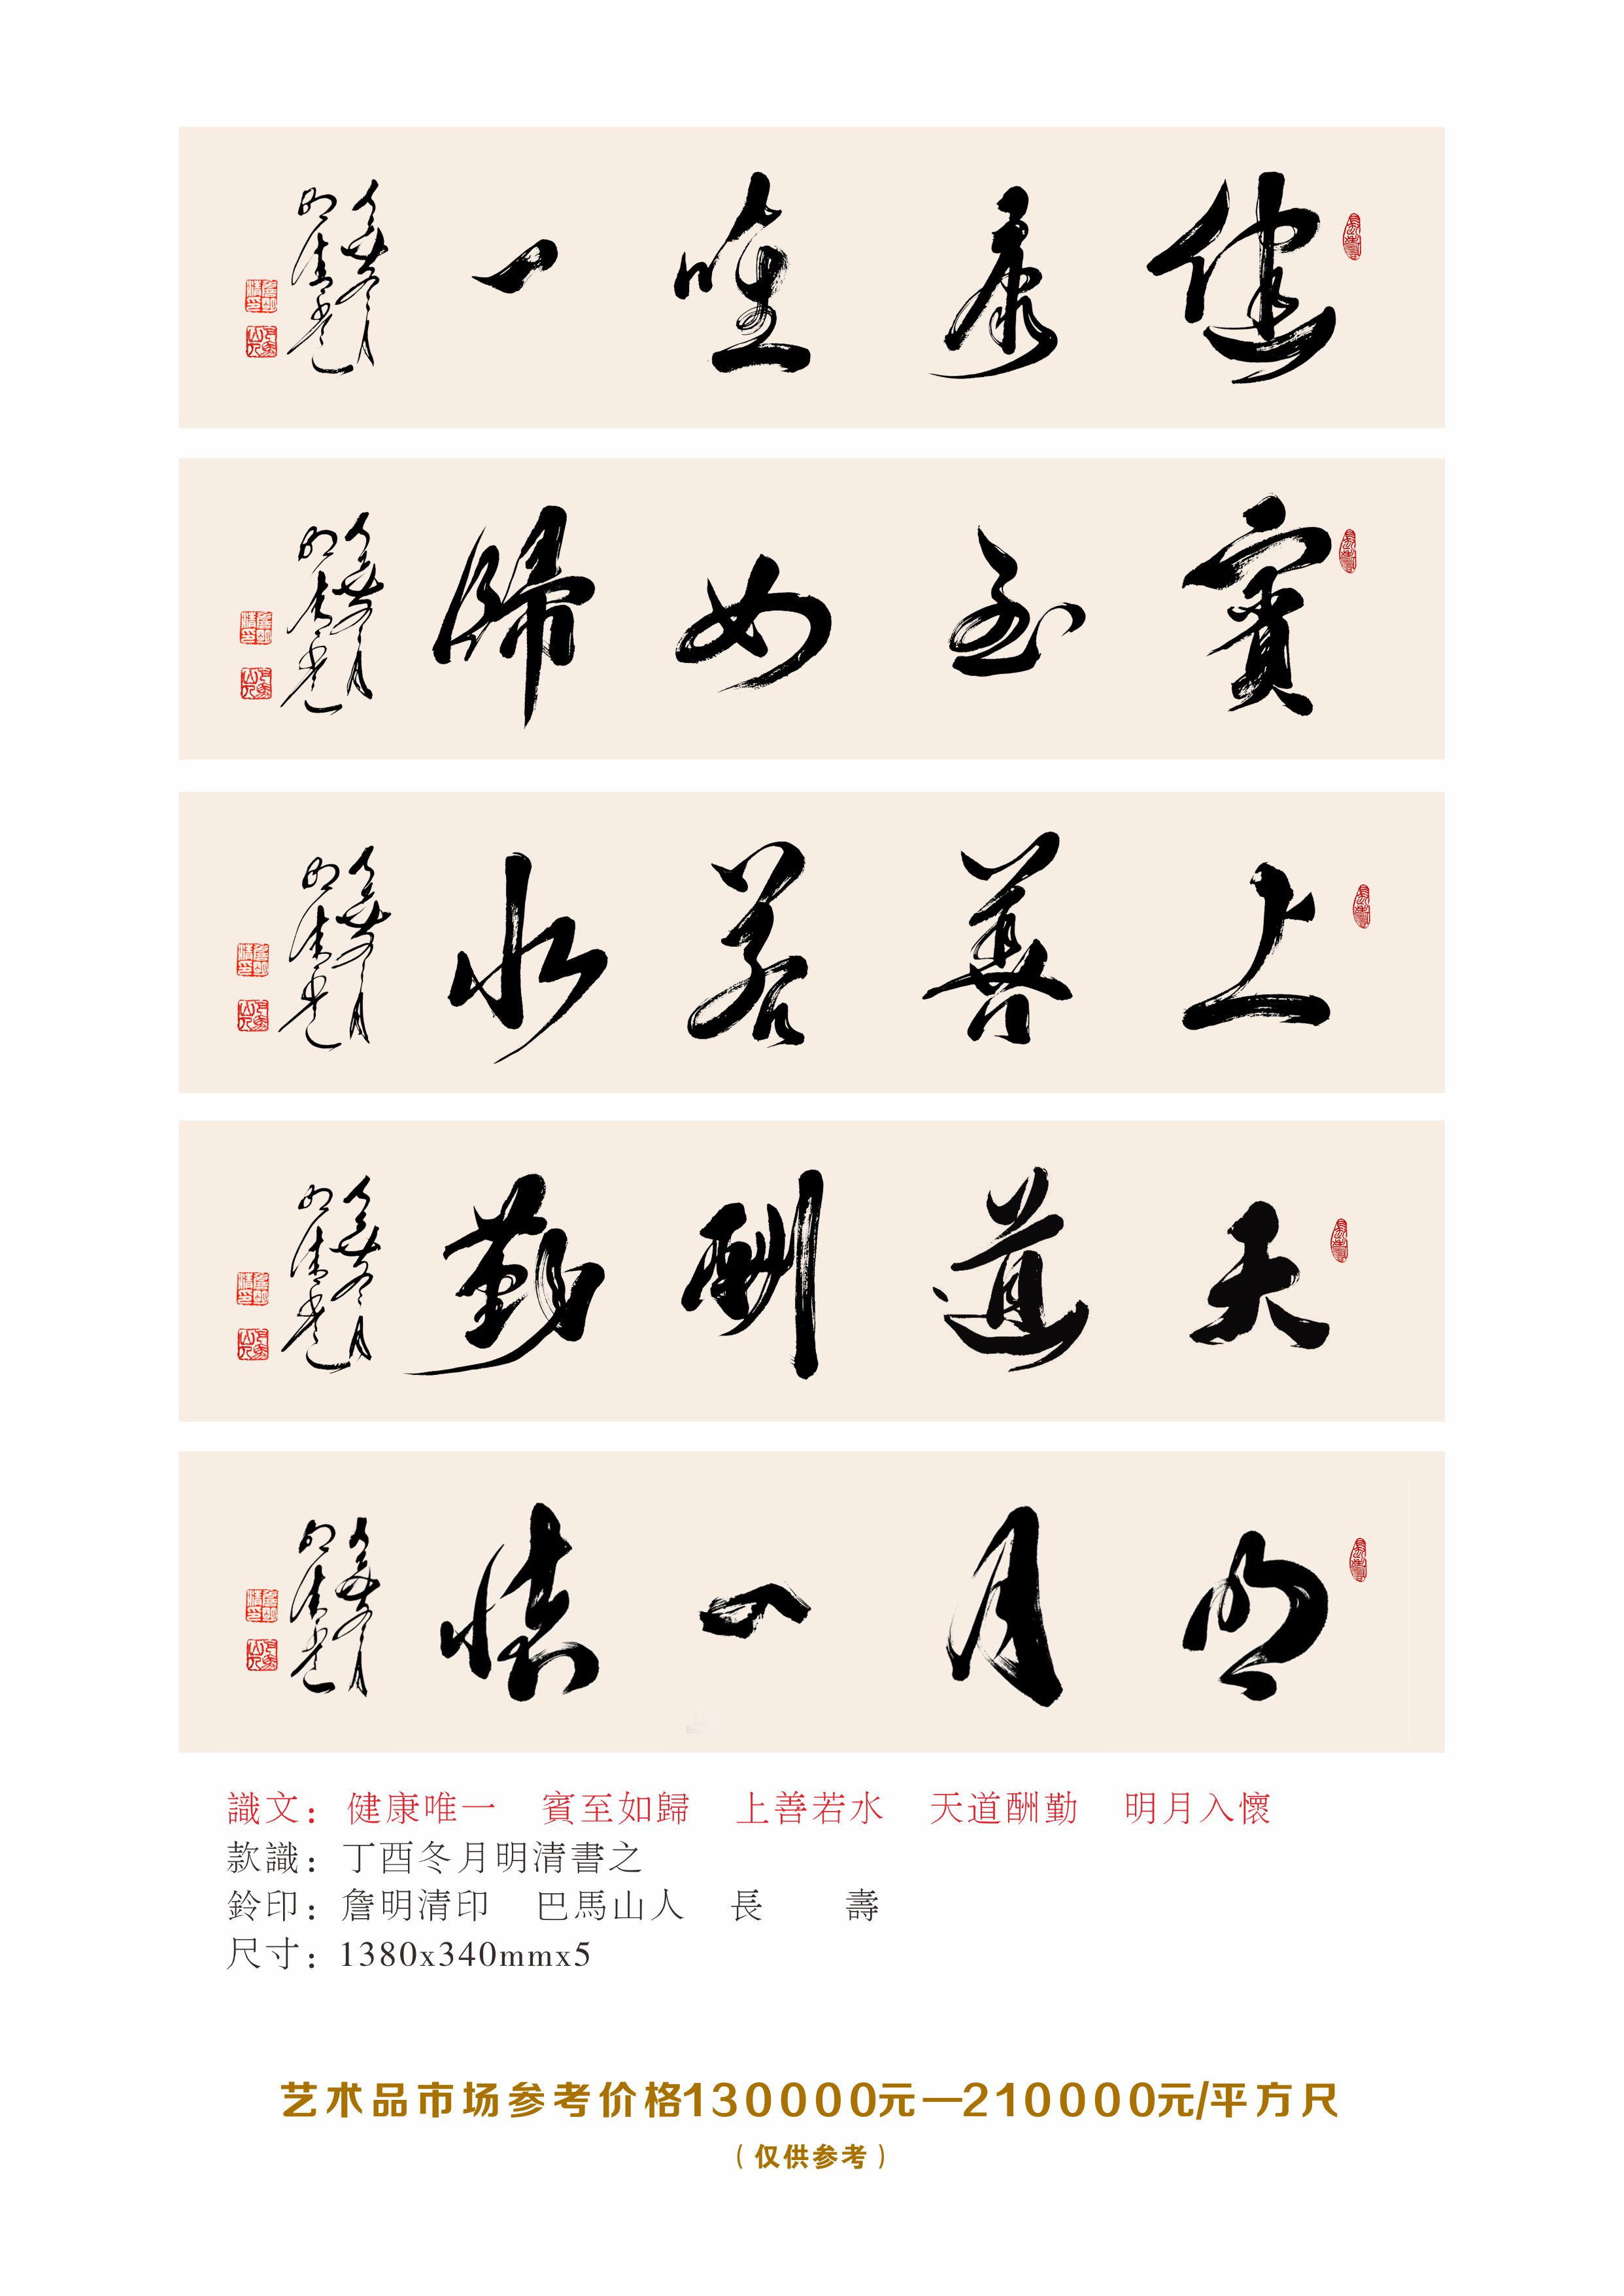 健康唯一
丁酉冬月
明清書之
賓至如歸
丁酉冬月
明清書之
上善若水
丁酉冬月
明清書之
天道酬勤
丁酉冬月
明清書之
明月入懷
丁酉冬月
明清書之
識文：健康唯一 賓至如歸 上善若水 天道酬勤 明月入懷
款識：丁酉冬月明清書之
鈴印：詹明清印 巴馬山人 長 壽
尺寸：1380x340mmx5
艺术品市场参考价格130000元—210000元/平方尺
（仅供参考）